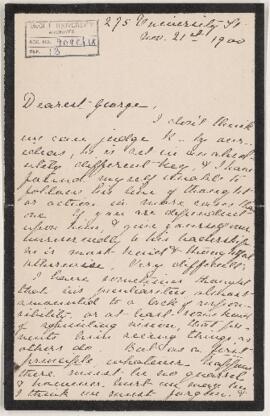 McGILL UNIVERSITY
ARCHIVES
ACC. NO.
REF.
275 University St.
Nov. 21st 1900
Dearest George,
I don't think
we can judge K— by our-
selves, he is set in an absol-
utely different key, & I have
found myself unable to
follow his line of thought
or action in more cases than
one. If you are dependent
upon him, & give yourself
unreservedly to his leadership
he is most kind & thoughtful
otherwise, very different.
I have sometimes thought
that his peculiarities almost
amounted to a lack of respon-
sibility, or at least some kind
of
vision, that pre-
vents him seeing things as
others do. But as a first
principle whatever happens
there must be no quarrel
& however hurt we may be
I think we must forgive. I